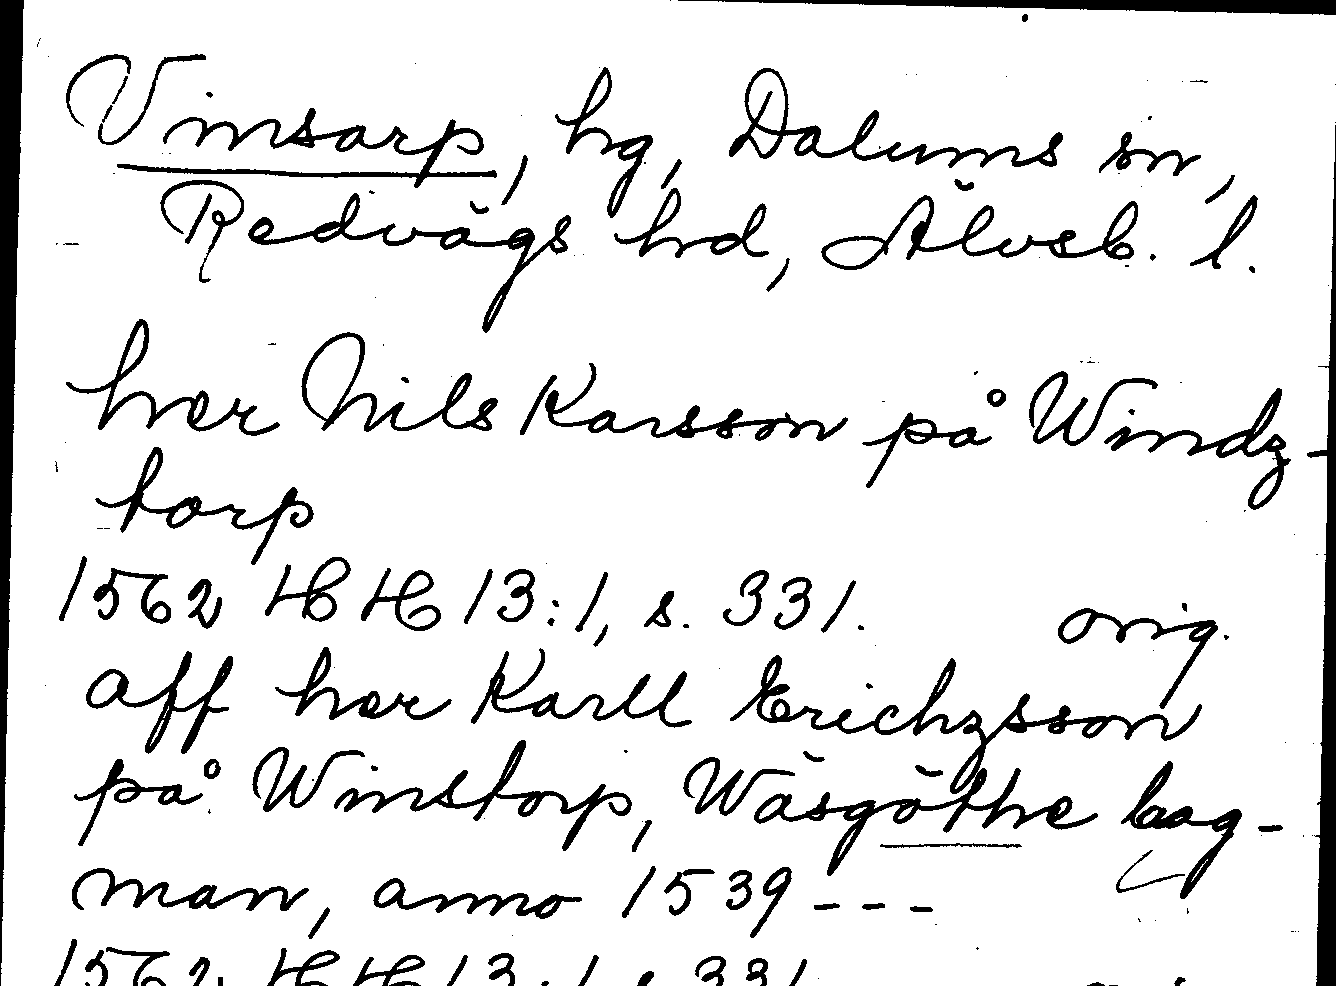 Vinsarp, hg, Dalums sn,
Redvägs hd, Älvsb. l.
her Nils Karsson på Windz-
torp
1562 HH 13:1, s. 331. orig.
aff her Karll Erichzsson
på Winstorp, Wäsgöthe lag-
man, anno 1539 - - -
1562 HH 13:1 s 331